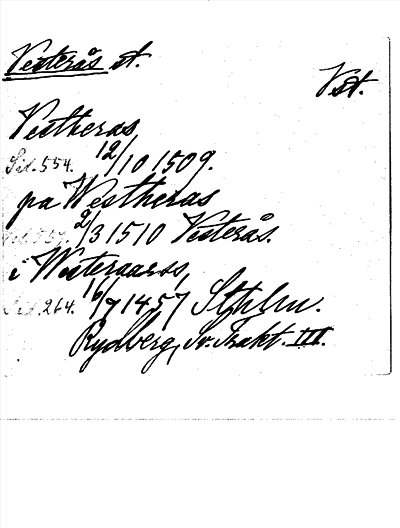 Vesterås st.
Vst.
Vestheras
Sid. 554. 12/10 1509.
pa Westheras
Sid. 557. 2/3 1510 Vesterås.
i Westeraarss,
Sid. 264. 16/7 1457 Sthlm.
Rydberg, Sv. Trakt. III.